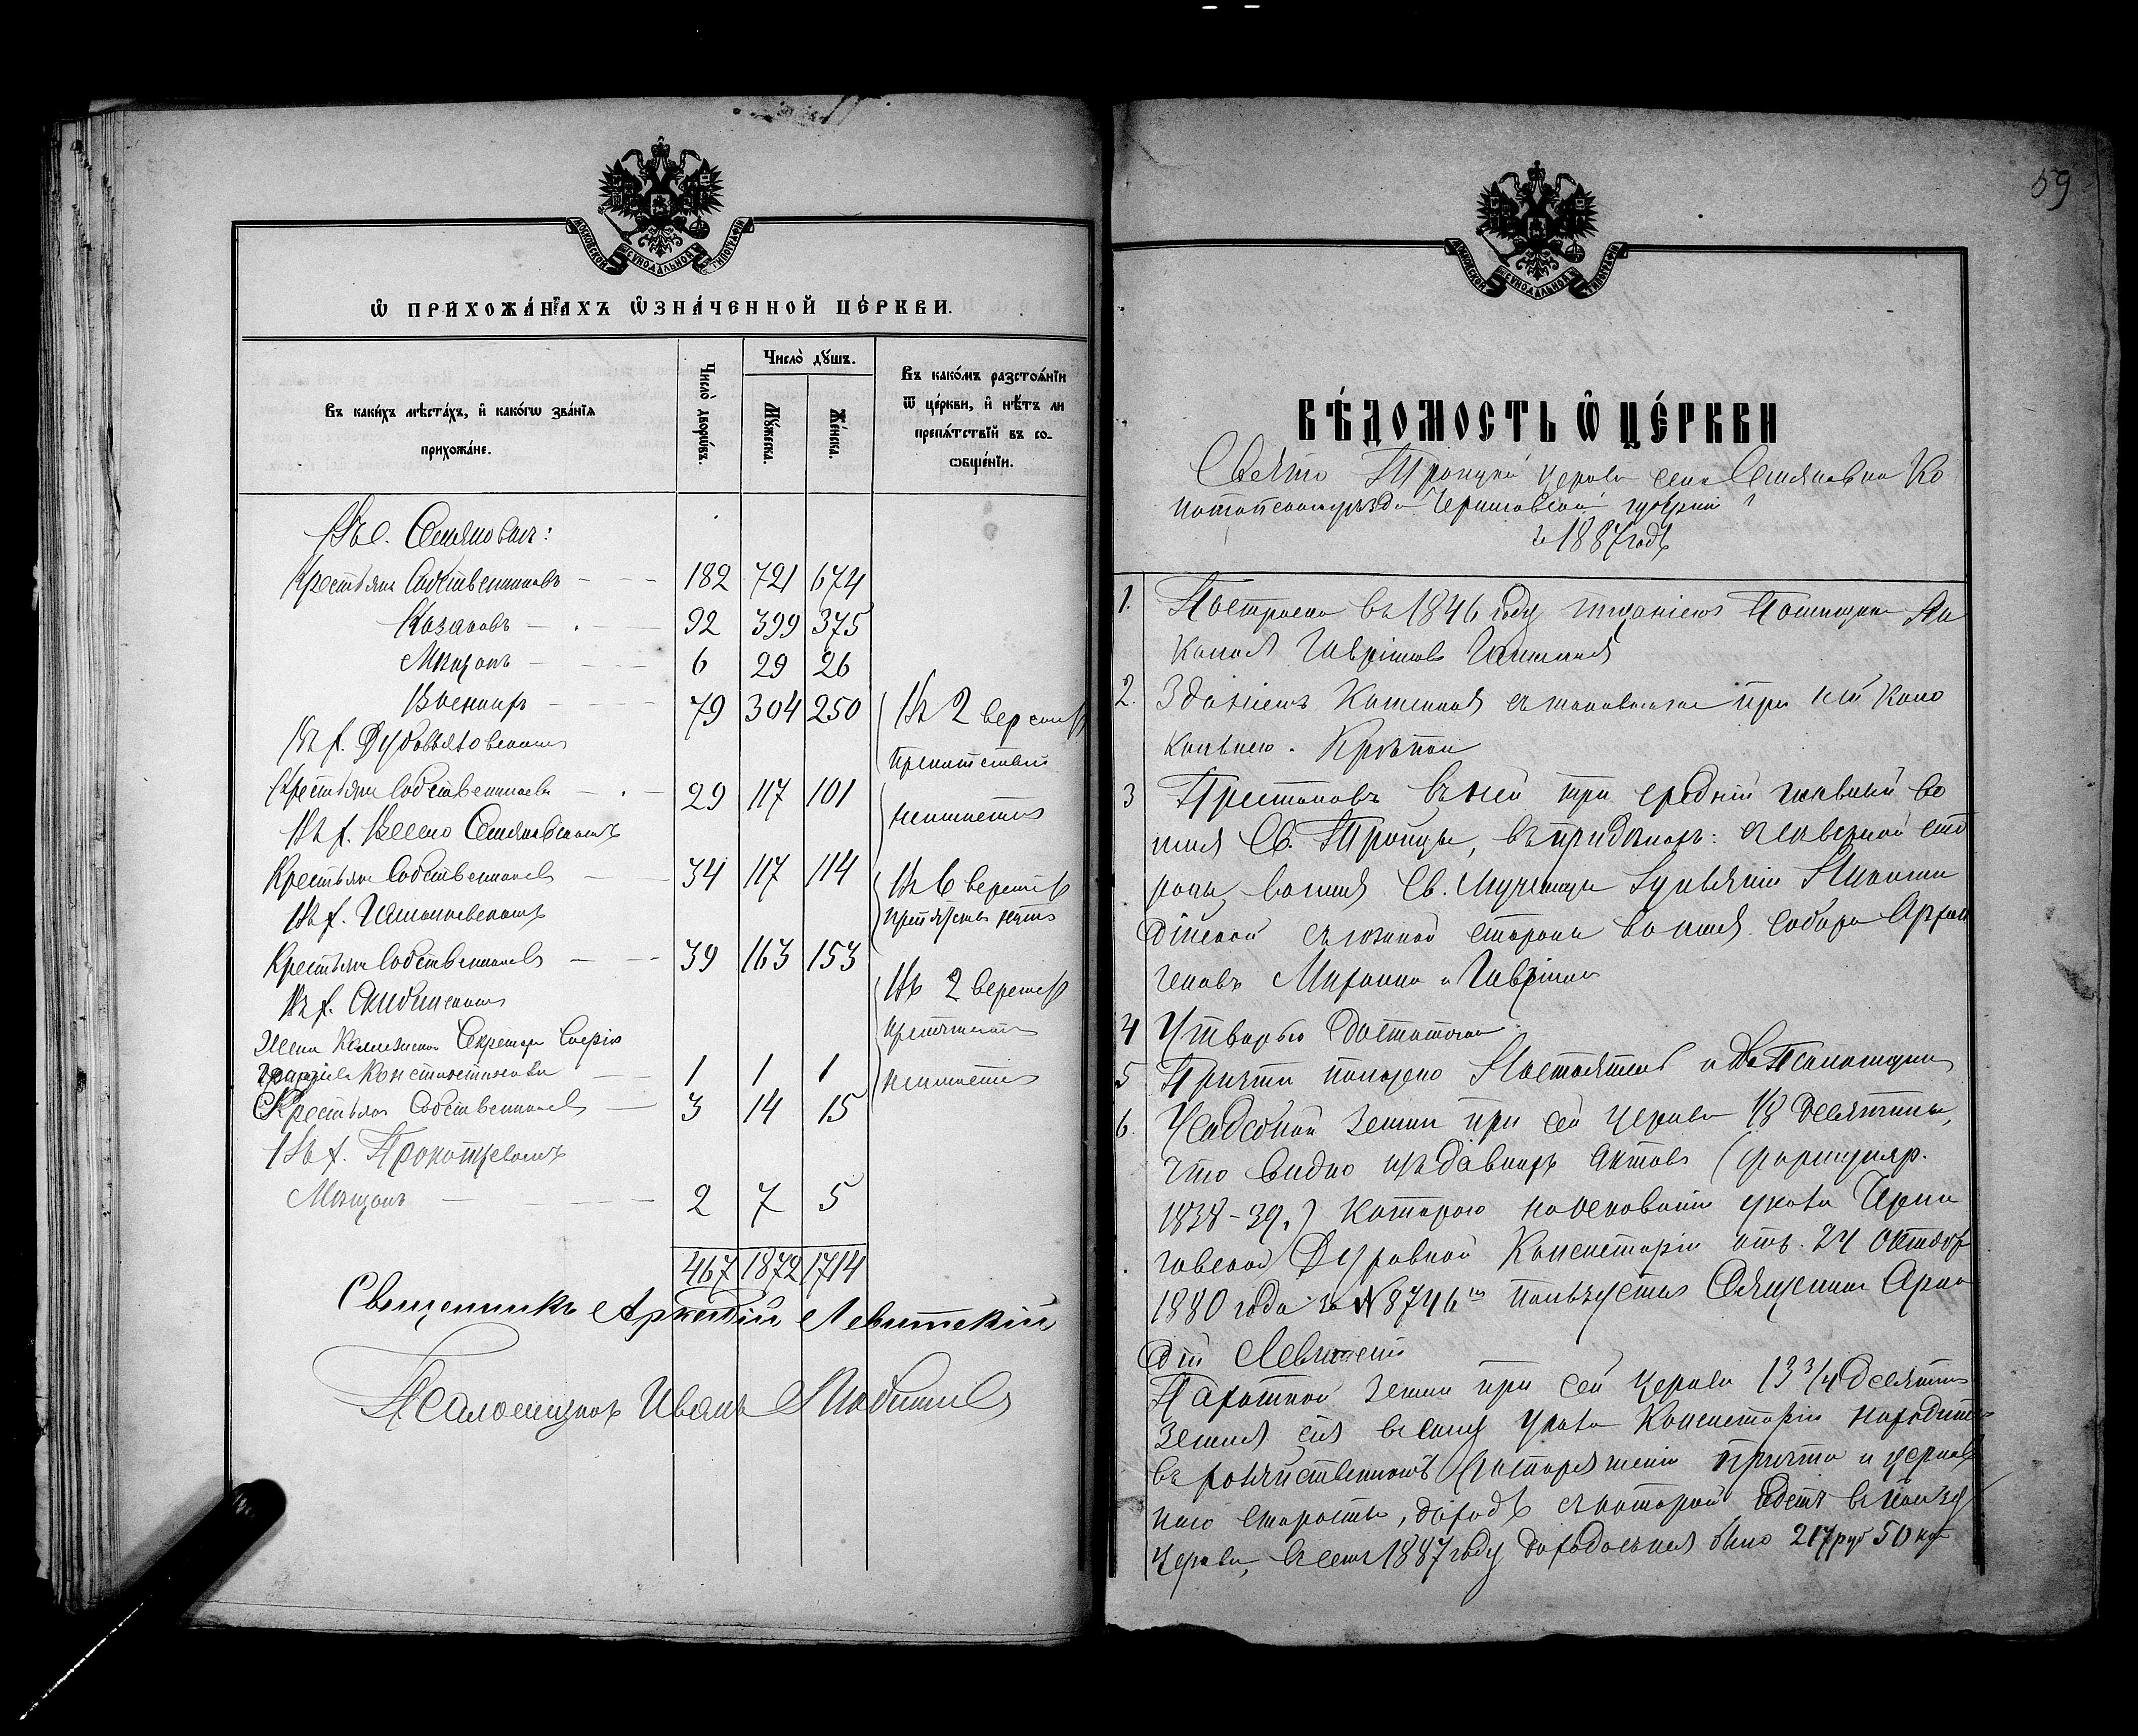 МОСКОВСКОЙ СѴНОДАЛЬНОЙ ТИПОГРАФІИ
Ѡ ПРИХОЖА́НѦХЪ ѠЗНА́ЧЕННОЙ ЦЕ́РКВИ.
Въ каки́хъ мѣста́хъ, и҆ како́гѡ зва́нїѧ
прихожа́не.
Число̀ дворѡ́въ.
Число̀ дꙋ́шъ.
Мꙋ́жеска.
Же́нска.
Въ како́мъ разстоѧ́нїи
ѿ це́ркви, и҆ нѣ́тъ ли
препѧ́тствїй въ со-
ѻбще́нїи.
Въ с. Семяновкѣ:
Крестьянъ Собственниковъ 182 721 674
Казаковъ 92 399 375
Мѣщанъ 6 29 26
Военныхъ 79 304 250
Въ 2 верстахъ
Въ х.
препятствій
Крестьянъ Собственниковъ 29 117 101
неимѣется
Въ х. Семяновскомъ
Крестьянъ Собственниковъ 34 117 114
Въ 6 верстахъ
Въ х.
препятствій нѣтъ
Крестьянъ Собственниковъ 39 163 153
Въ 2 верстахъ
Въ х.
препятствій
Жена Секретаря Софія
Константинова 1 1 1
неимѣется
Крестьянъ Собственниковъ 3 14 15
Въ х.
Мѣщанъ 2 7 5
467 1872 1714
Священникъ Аркадій Левитскій
Псаломщикъ Иванъ
59
МОСКОВСКОЙ СѴНОДАЛЬНОЙ ТИПОГРАФІИ
ВѢ́ДОМОСТЬ Ѡ҆ ЦЕ́РКВИ
Свято Троицкой церкви села Семяновки Ко
нотопскаго уѣзда Черниговской губерніи
за 1887 годъ
1. Построена въ 1846 году тщаніемъ Помѣщика
2. Зданіемъ Каменная съ таковою же при ней коло
кольнею. Крѣпка
3 Престоловъ въ ней три средній главный во
имя Св. Троицы, въ придѣлахъ: съ сто
роны во имя Св. Мученицы Іуліаніи Никоми
дійской съ южной стороны во имя собора Архан
геловъ Михаила и Гавріила
4 Утварью достаточна
5 Причта положено Настоятель и Псаломщикъ
6. Усадебной земли при сей церкви десятины,
что видно изъ давнихъ актовъ (формуляр.
1838-39.) которою на основаніи указа Черни
говской Духовной Консисторіи отъ 24 октября
1880 года за № 8746 пользуется Священникъ Арка
дій Левитскій
Пахатной земли при сей церкви 13 3/4 десятинъ
земля сія въ силу указа Консисторіи находится
въ хозяйственномъ распоряженіи причта и церков
наго старосты, доходъ съ которой идетъ въ пользу
Церкви, въ семъ 1887 году было 217 руб 50 коп